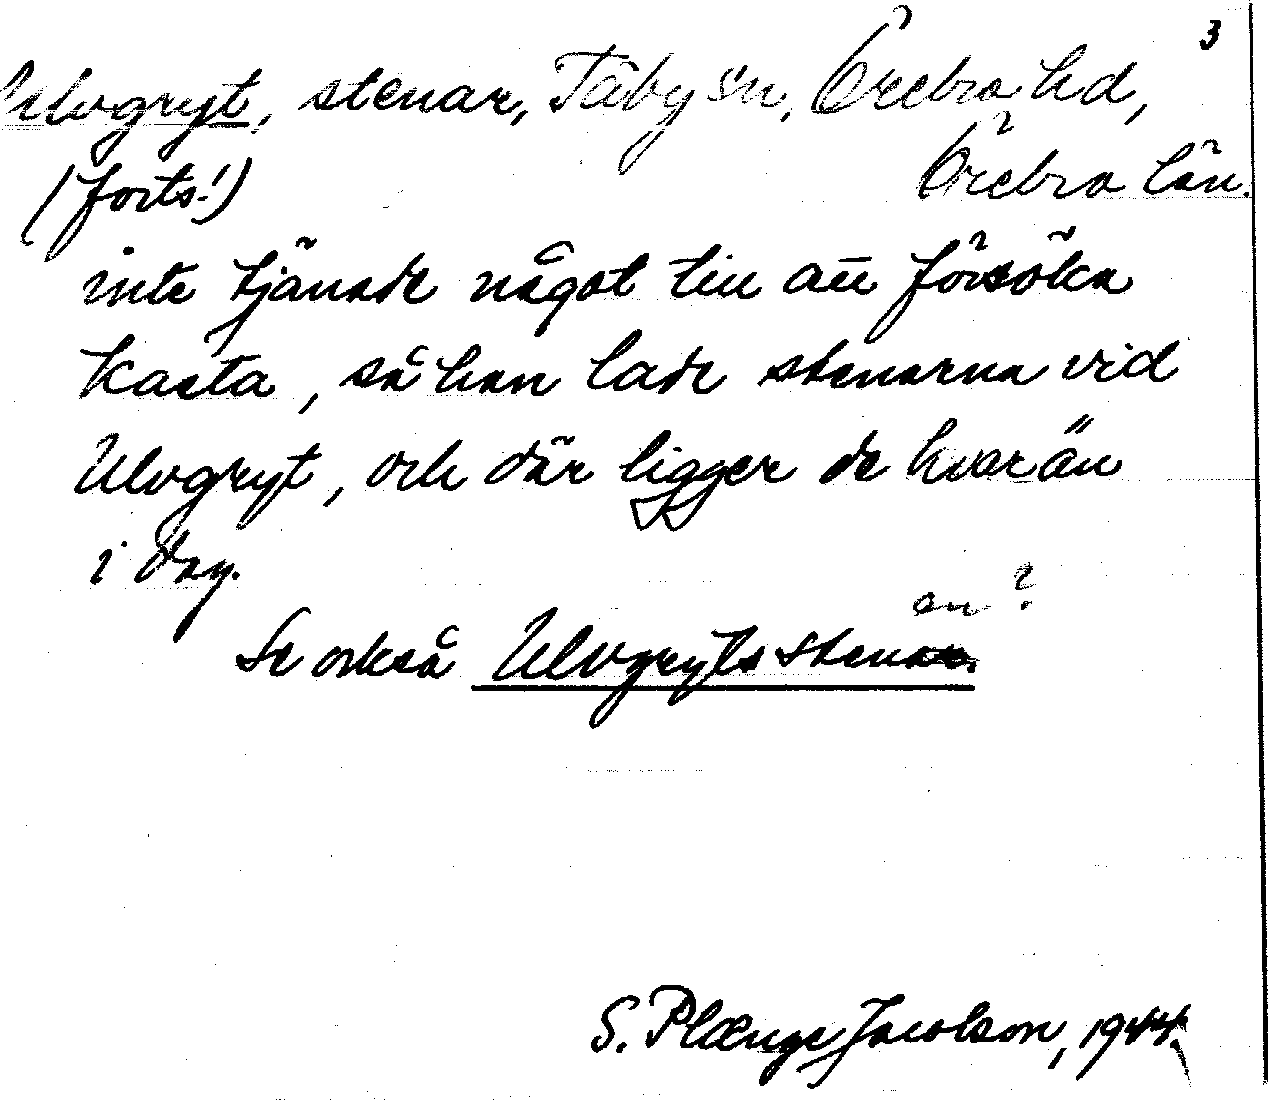 3
Ulvgryt, stenar, Täby sn, Örebro hd,
(forts.!) Örebro län.
inte tjänade något till att försöka
kasta, så han lade stenarna vid
Ulvgryt, och där ligger de kvar än
i dag.
en ?
Se också Ulvgrytsstenar.
S. Plænge Jacobson, 1944.